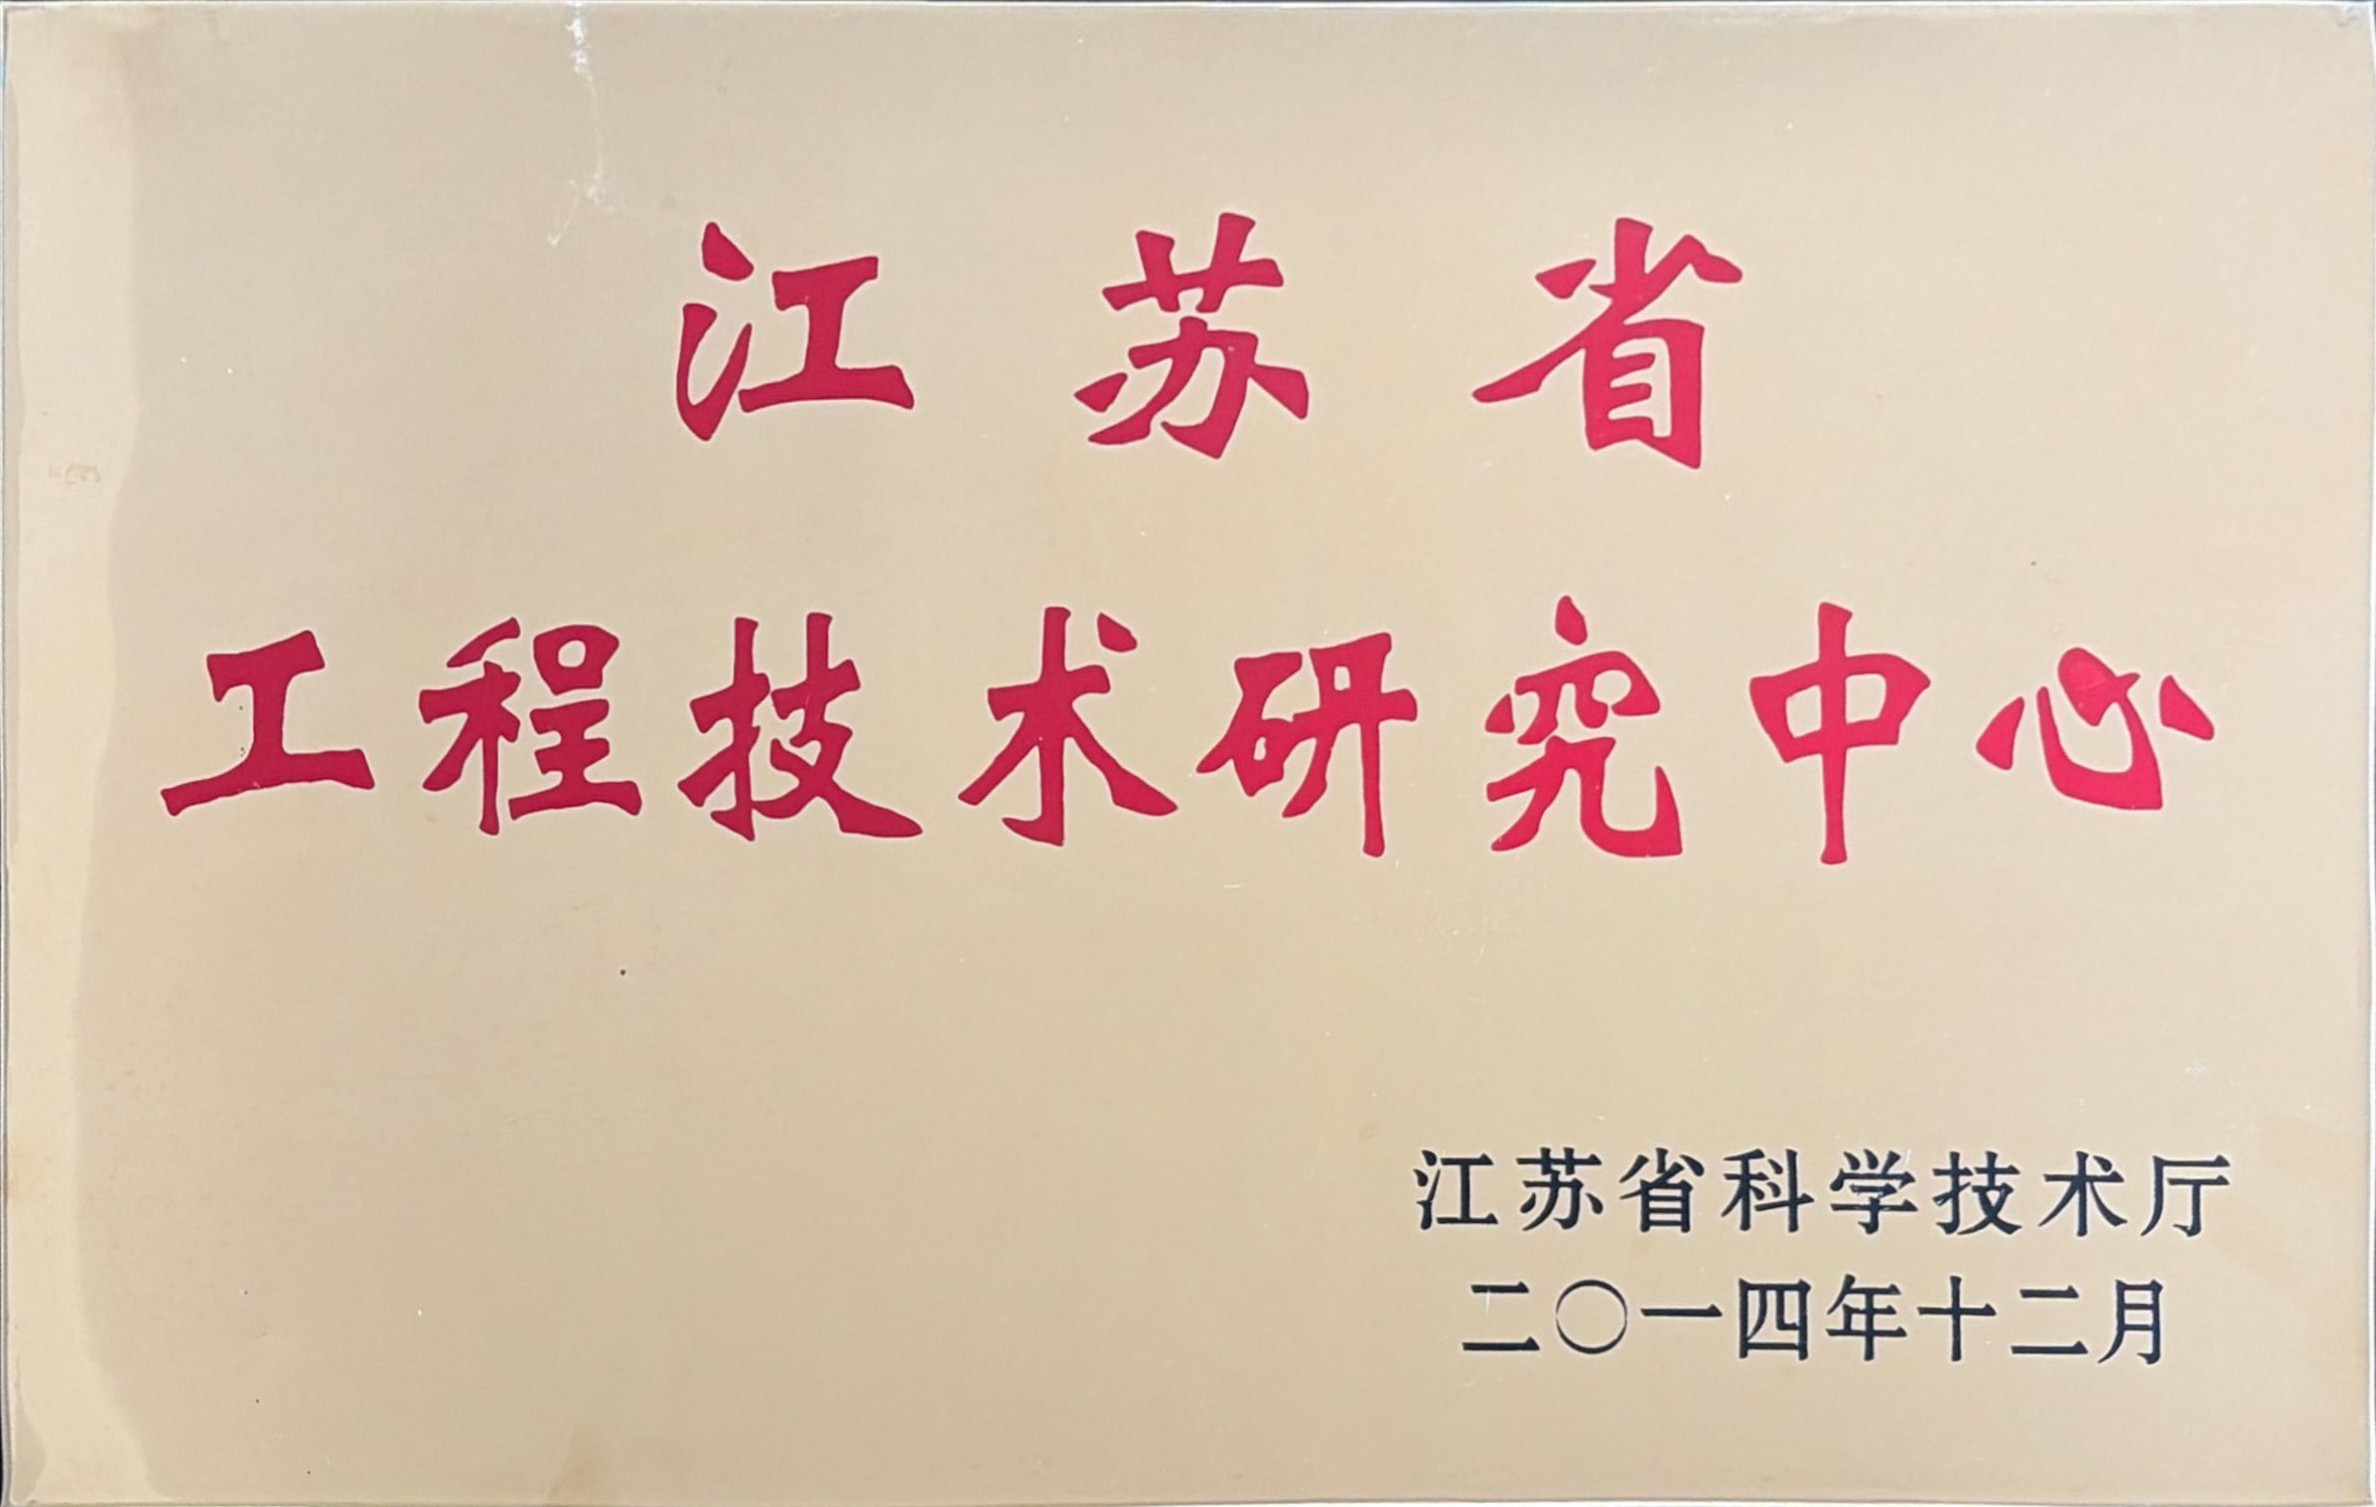 江苏省
工程技术研究中心
江苏省科学技术厅
二〇一四年十二月